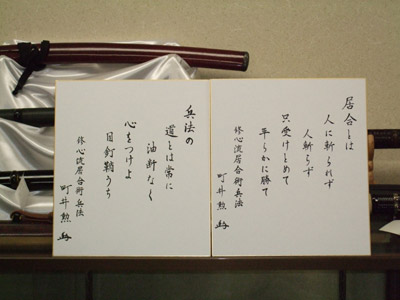 居合とは
人に斬られず
人斬らず
只受けとめて
平らかに勝て
修心流居合術兵法
町井勲
兵法の
道とは常に
油断なく
心をつけよ
目釘鞘うち
修心流居合術兵法
町井勲